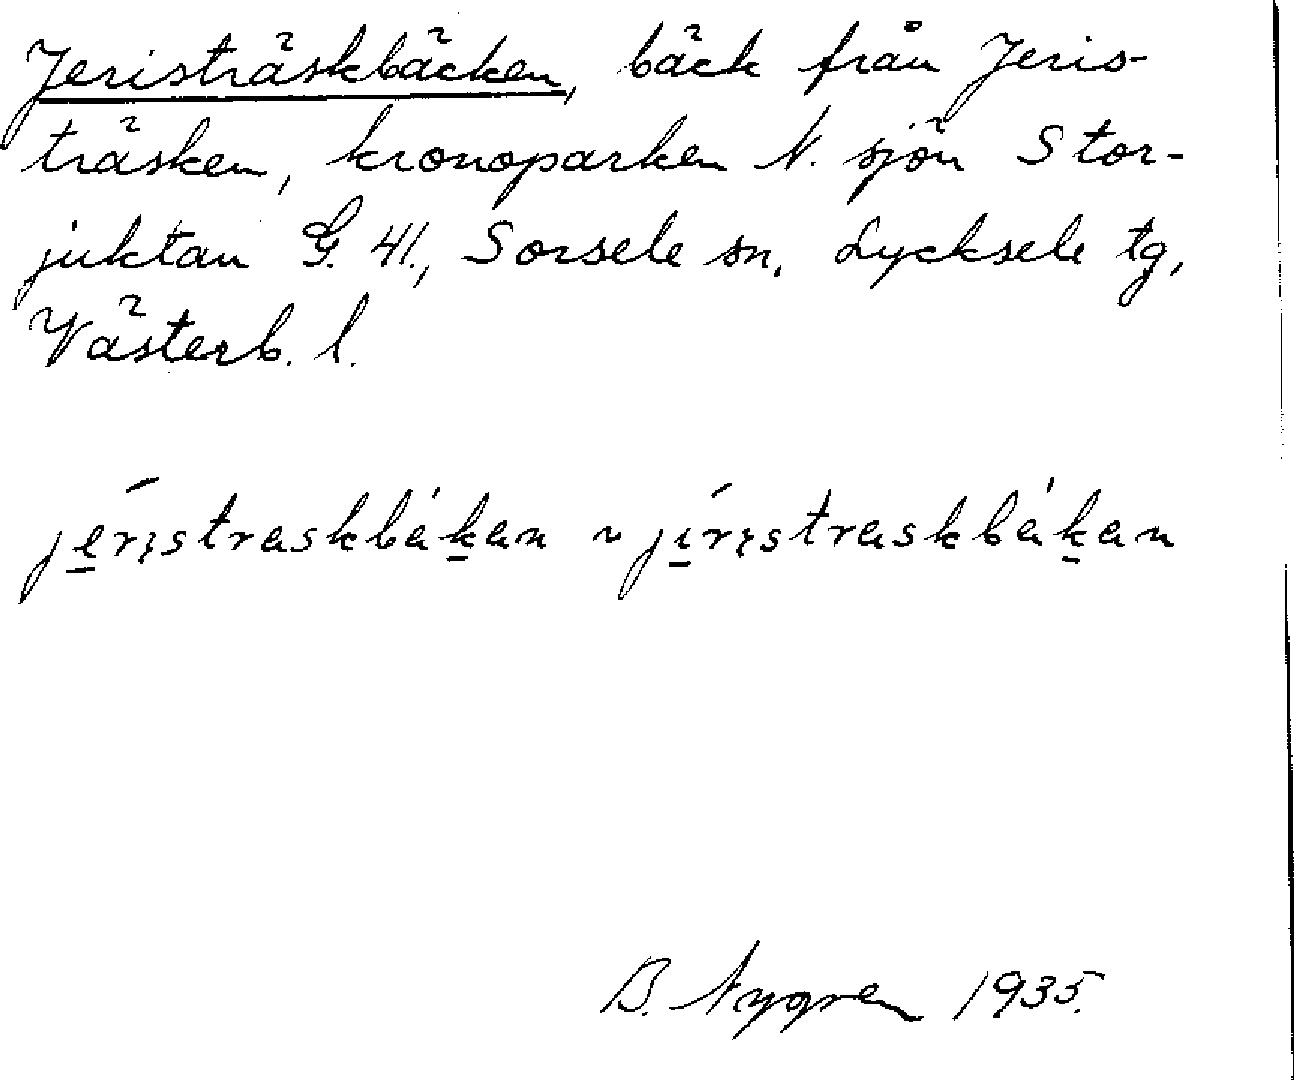 Jeristräskbäcken, bäck från Jeris-
träsken, kronoparken N. sjön Stor-
juktan G. 41., Sorsele sn, Lycksele tg,
Västerb. l.
jéristraskbákan ~ jíristraskbákan
B. Nygren 1935.